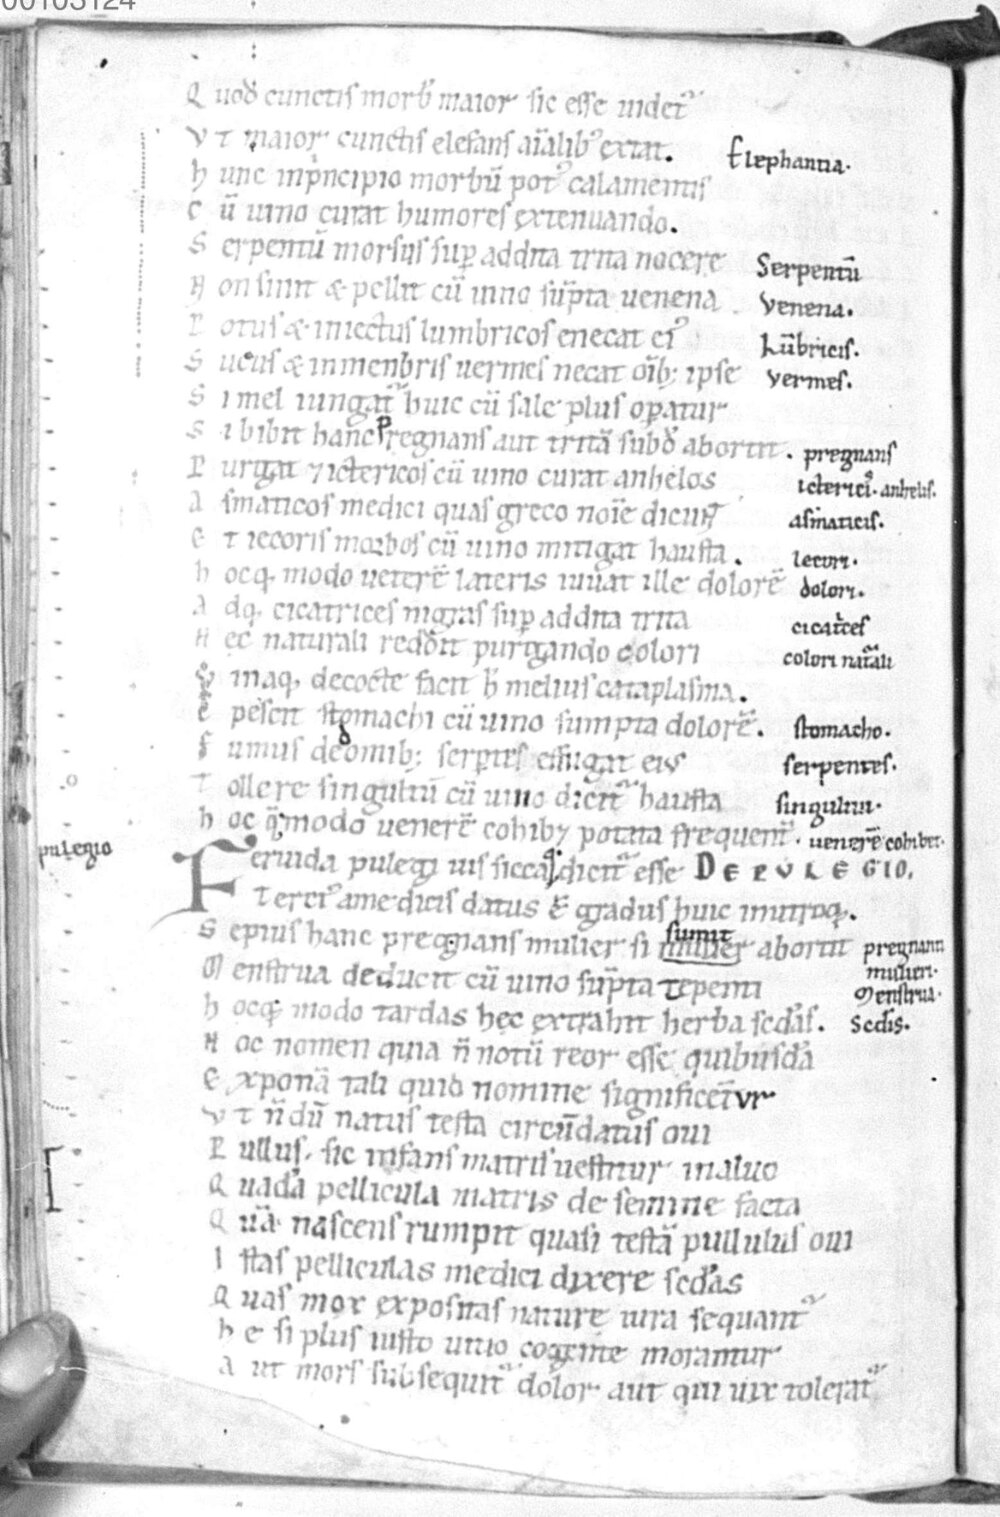 00103124
Quod cunctis morb maior sic esse uidet
Vt maior cunctis elefans aīalib' extat. Elephantia.
hunc inp̄ncipio morbū pot' calamentis
Cū uino curat humores extenuando.
Serpentū morsus sup addita trita nocere Serpentū
Non sinit & pellit cū uino sūpta uenena Venena.
Potus & iniectus lumbricos enecat ei' Lūbricis.
Sucus & in menbris uermes necat oīb; ipse Vermes.
Si mel iungat huic cū sale plus opatur
Si bibit hanc pregnans aut tritā subd' abortit. pregnans
Purgat ⁊ ictericos cū uino curat anhelos icterici. anhelis.
Asmaticos medici quas greco noīe dicunt asmaticis.
Et iecoris morbos cū uino mitigat hausta. Iecori.
hocq modo ueterē lateris iuuat ille dolorē dolori.
Adq, cicatrices nigras sup addita trita cicat'ces
Nec naturali reddit purgando colori colori nat̄ali
Vinaq, decocte facit h' melius cataplasma.
Cōpescit stomachi cū uino sumpta dolorē. stomacho.
Fumus de domib; serptes effugat eius serpentes.
Tollere singultū cū uino dicit hausta singultui.
hoc q̄modo uenerē cohib⁊ potata frequent. uenerē cohibet.
pulegio
Feruida pulegi uis sicca dicit esse DE PVLEGIO.
Terci' a medicis datus ē gradus huic inutroq.
Sepius hanc pregnans mulier si mulier sumit abortit pregnanti
mulieri.
Menstrua deducit cū uino sūpta tepenti Menstrua.
hocq modo tardas hec extrahit herba sedas. Sedis.
Hoc nomen quia n̄ notū reor esse quibusdā
Exponā tali quid nomine significetur
Vt n̄dū natus testa circūdatus oui
Pullus, sic infans matris uestitur in aluo
Quadā pellicula matris de semine facta
Quā nascens rumpit quasi testā pullulus oui
Istas pelliculas medici dixere sedas
Quas mox expositas nature iura sequant
he si plus iusto utio cogente morantur
Aut mors subsequit dolor aut qui uix tolerat